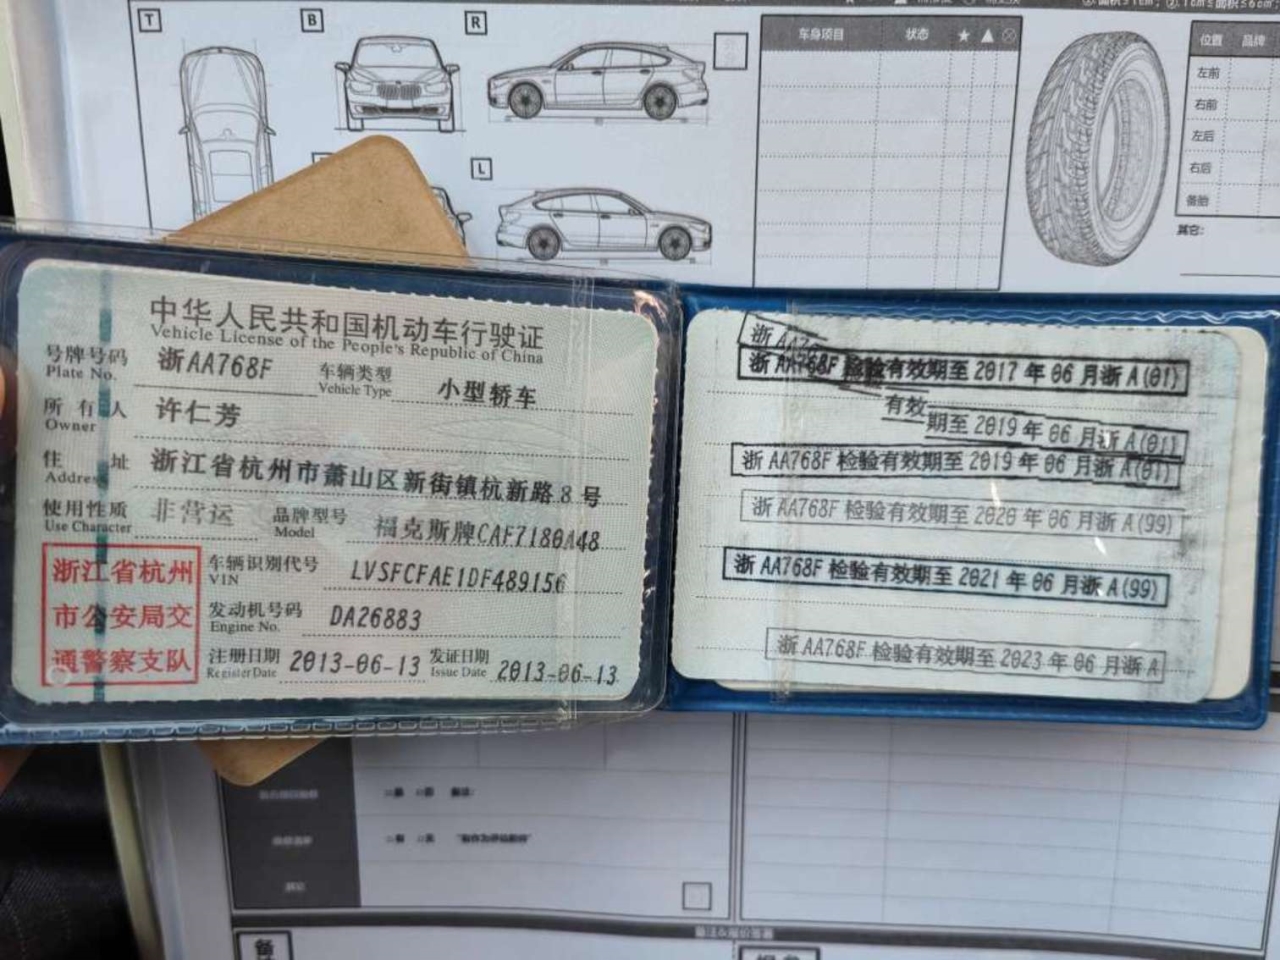 T
B
R
L
车身项目 状态 ★ ▲
位置 品牌
左前
右前
左后
右后
备胎
其它:
中华人民共和国机动车行驶证
Vehicle License of the People's Republic of China
号牌号码 浙AA768F 车辆类型 小型轿车
Plate No. Vehicle Type
所有人 许仁芳
Owner
住址 浙江省杭州市萧山区新街镇杭新路8号
Address
使用性质 非营运 品牌型号 福克斯牌CAF7180A48
Use Character Model
浙江省杭州
市公安局交
通警察支队
车辆识别代号 LVSFCFAE1DF489156
VIN
发动机号码 DA26883
Engine No.
注册日期 2013-06-13 发证日期 2013-06-13
Register Date Issue Date
浙AA76
浙AA768F 检验有效期至2017年06月浙A(01)
有效
期至2019年06月浙A(01)
浙AA768F 检验有效期至2019年06月浙A(01)
浙AA768F 检验有效期至2020年06月浙A(99)
浙AA768F 检验有效期至2021年06月浙A(99)
浙AA768F 检验有效期至2023年06月浙A